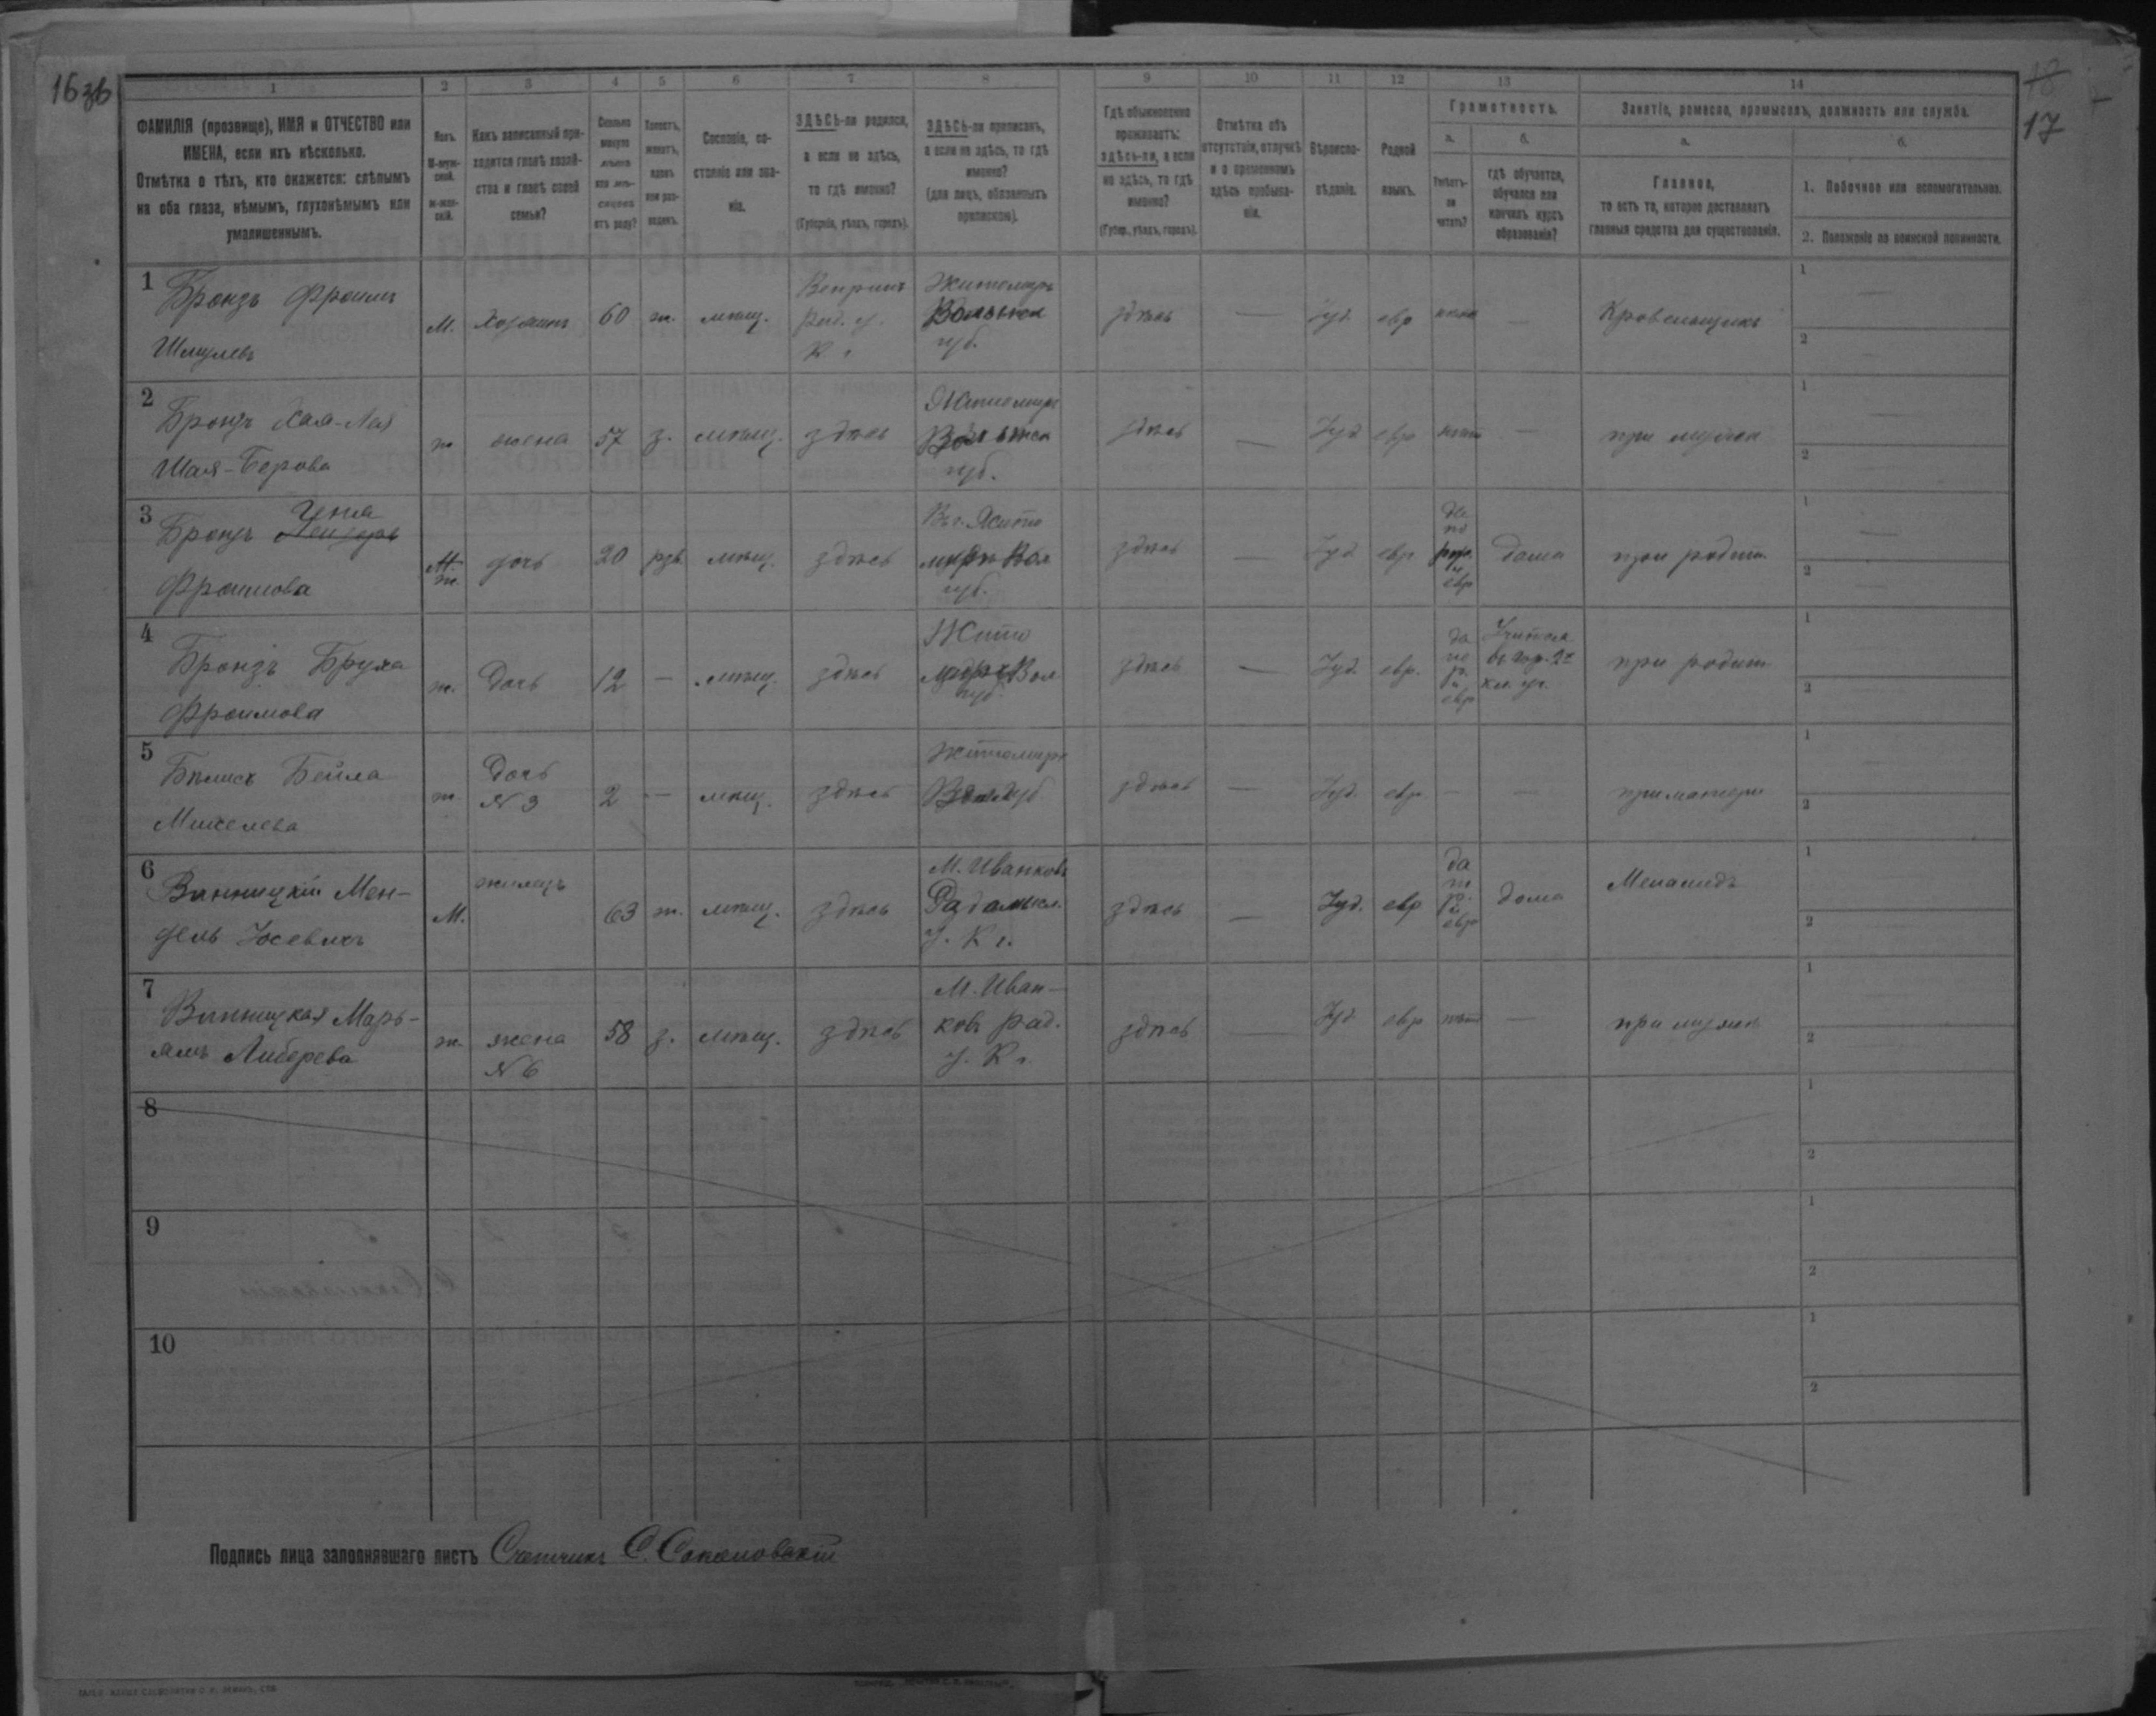 16зв
18
17
1 2 3 4 5 6 7 8 9 10 11 12 13 14
ФАМИЛІЯ (прозвище), ИМЯ и ОТЧЕСТВО или ИМЕНА, если ихъ нѣсколько.
Отмѣтка о тѣхъ, кто окажется: слѣпымъ на оба глаза, нѣмымъ, глухонѣмымъ или умалишеннымъ.
Полъ.
М-муж-ской.
ж-жен-скій.
Какъ записанный при-ходится главѣ хозяй-ства и главѣ своей семьи?
Сколько минуло лѣтъ или мѣ-сяцевъ отъ роду?
Холостъ, женатъ, вдовъ или раз-веденъ.
Сословіе, со-стояніе или зва-ніе.
ЗДѢСЬ-ли родился, а если не здѣсь, то гдѣ именно?
(Губернія, уѣздъ, городъ).
ЗДѢСЬ-ли приписанъ, а если не здѣсь, то гдѣ именно?
(для лицъ, обязанныхъ припискою).
Гдѣ обыкновенно проживаетъ: здѣсь-ли, а если не здѣсь, то гдѣ именно?
(Губер., уѣздъ, городъ).
Отмѣтка объ отсутствіи, отлучкѣ и о временномъ здѣсь пребыва-ніи.
Вѣроиспо-вѣданіе.
Родной языкъ.
Грамотность.
а.
Умѣетъ-ли читать?
б.
гдѣ обучается, обучался или кончилъ курсъ образованія?
Занятіе, ремесло, промыселъ, должность или служба.
а.
Главное,
то есть то, которое доставляетъ главныя средства для существованія.
б.
1. Побочное или вспомогательное.
2. Положеніе по воинской повинности.
1 Бронзъ Фроимъ Шмулевъ М. Хозяинъ 60 ж. мѣщ. Вепринъ Рад. у. К г. Житомиръ Волынск губ. здѣсь — Іуд. евр нѣтъ — Кровельщикъ 1 — 2 —
2 Бронзъ Хая-Лея Шая-Берова ж жена 57 з. мѣщ. здѣсь Житомиръ Волынск губ. здѣсь — Іуд евр нѣтъ — при мужѣ 1 — 2 —
3 Бронзъ Фроимова М. ж. дочь 20 рзв. мѣщ. здѣсь Вг. Жито миръ Вол губ. здѣсь — Іуд евр да по рус. и евр дома при родит. 1 — 2
4 Бронзъ Бруха Фроимова ж. дочь 12 — мѣщ. здѣсь Жито миръ Вол губ. здѣсь — Іуд. евр. да по р. и евр Учится в. гор. 2х кл. уч. при родит. 1 — 2
5 Бейла Мошелева ж дочь №3 2 — мѣщ. здѣсь Житомиръ Вол губ здѣсь — Іуд. евр. — — при матери 1 2
6 Винницкій Мен-дель Іосевичъ М. жилецъ 63 ж. мѣщ. здѣсь М. Иванковъ Радомысл. у. К г. здѣсь — Іуд. евр да п р. и евр дома Меламидъ 1 2
7 Винницкая Марь-ямъ Либерева ж. жена №6 58 з. мѣщ. здѣсь М. Иван-ковъ Рад. у. К г. здѣсь — Іуд евр нѣтъ — при мужѣ 1 2
8 1 2
9 1 2
10 1 2
Подпись лица заполнявшаго листъ Счетчикъ С. Соколовскій